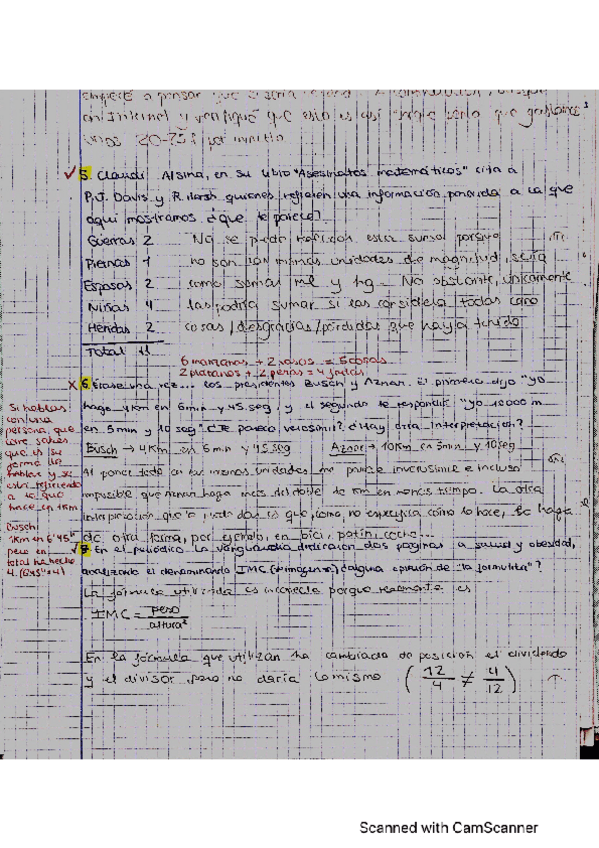 5. Claudi Alsina, en su libro "Asesinatos matemáticos" cita a
P.J. Davis y R. Hersh quienes refieren una información parecida a la que
aquí mostramos, ¿qué te parece?
Guerras 2
Piernas 1
no son las mismas unidades de magnitud, sería
Esposas 2
como sumar ml y kg. No obstante, únicamente
Niñas 4
las podría sumar si las considera todas como
Heridas 2
cosas/desgracias/pérdidas que haya tenido
Total 11
6 manzanas + 2 vasos = 8 cosas
2 plátanos + 2 peras = 4 frutas
6. Érase una vez... los presidentes Busch y Aznar. El primero dijo "yo
hago 4 km en 6 min y 45 seg, y el segundo le respondió "yo 10000 m
en 5 min y 10 seg" ¿Te parece verosímil? ¿Hay otra interpretación?
Busch → 4 Km en 6 min y 45 seg Aznar → 10 Km en 5 min y 10 seg
Al poner todo en las mismas unidades me parece inverosímil e incluso
imposible que Aznar haga más del doble de km en menos tiempo. La otra
interpretación que puede dar es que, como no especifica cómo lo hace, lo haga
de otra forma, por ejemplo, en bici, patín, coche...
Si hablas
con una
persona, que
corre sabes
que es su
forma de
hablar y se
está refiriendo
a lo que
hace en 1 Km
Busch:
1Km en 6'45"
pero en
total ha hecho
4.(6'45"x4)
7. En el periódico La Vanguardia dedicaron dos páginas a salud y obesidad,
analizando el denominado IMC (+ imagen) ¿alguna opinión de "la formulita"?
La fórmula utilizada es incorrecta porque realmente es
IMC = peso / altura²
En la fórmula que utilizan ha cambiado de posición el dividendo
y el divisor pero no daría lo mismo (12/4 ≠ 4/12)
Scanned with CamScanner